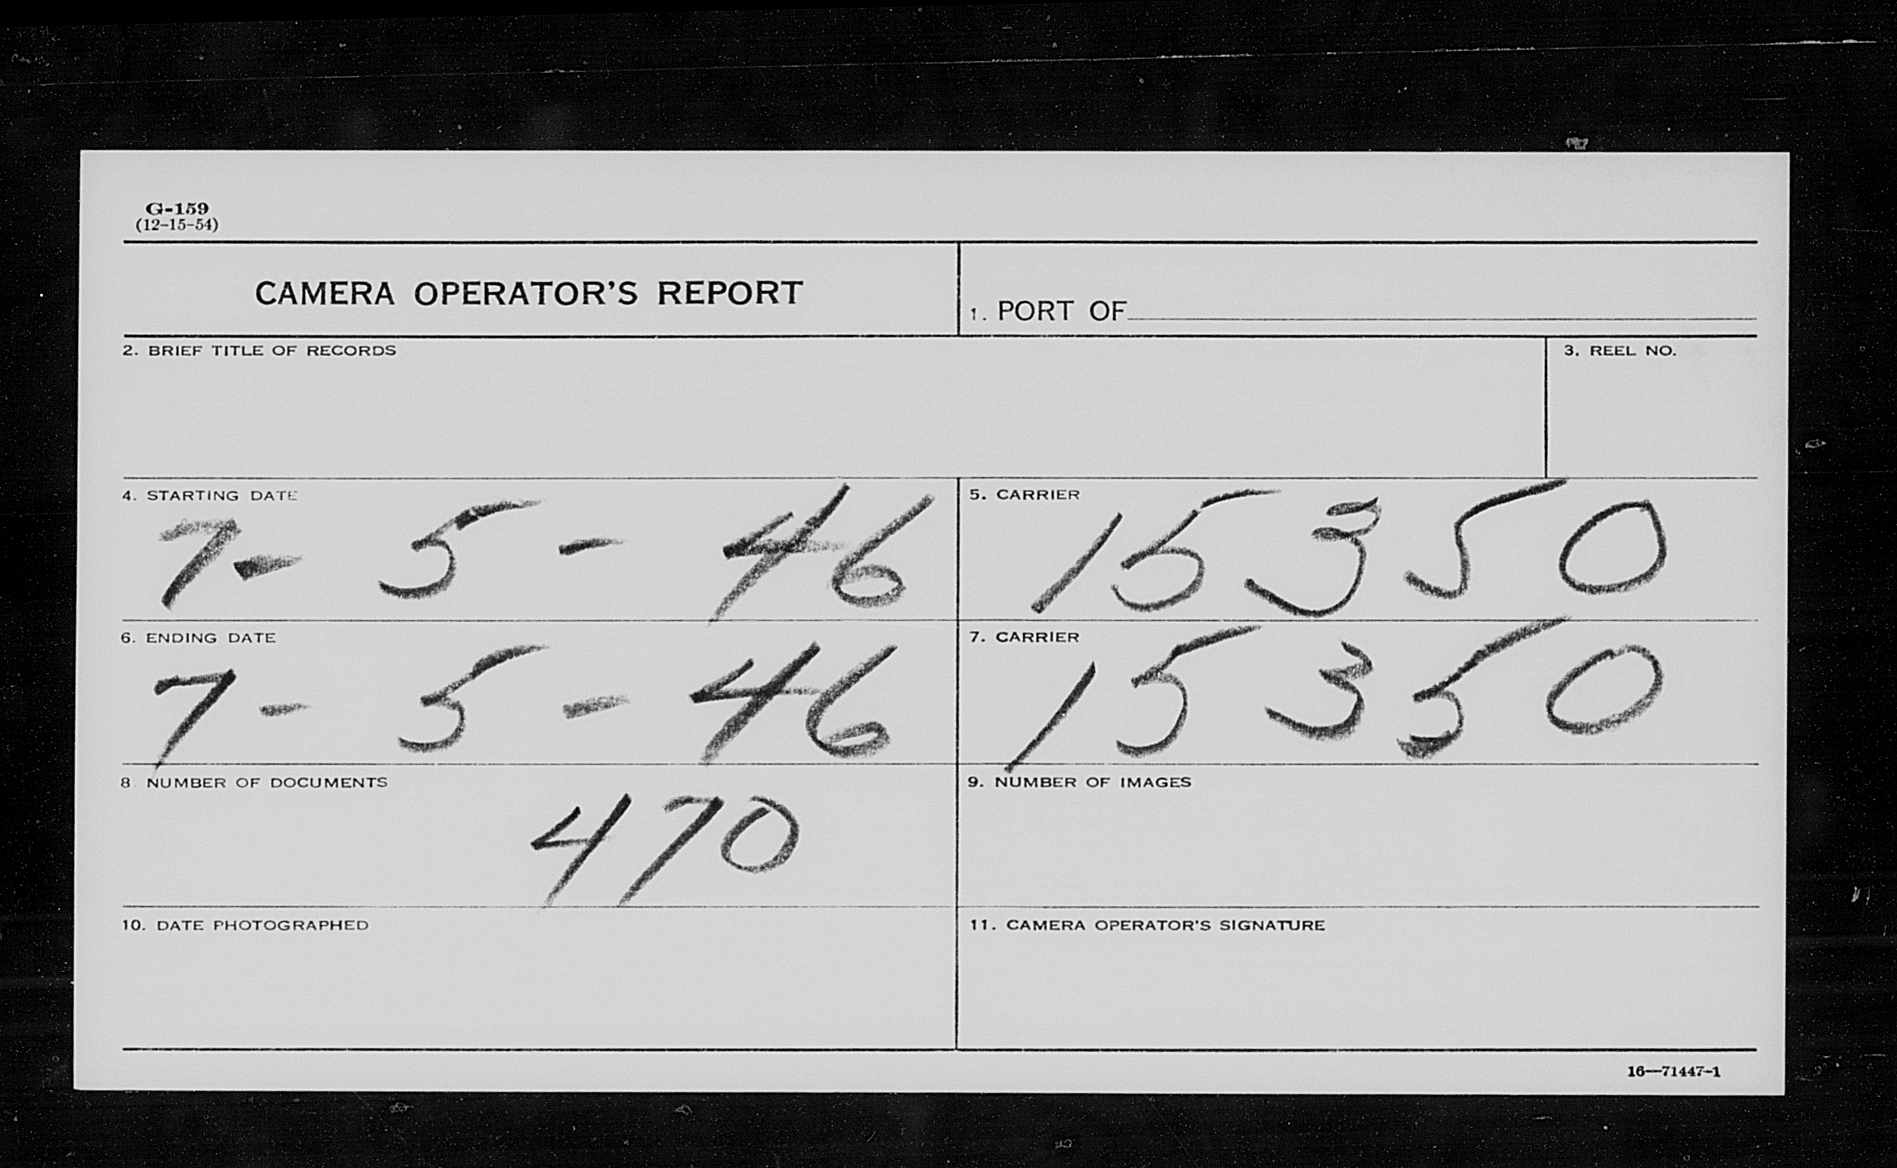 G-159
(12-15-54)
CAMERA OPERATOR'S REPORT
1. PORT OF
2. BRIEF TITLE OF RECORDS
3. REEL NO.
4. STARTING DATE
7- 5 - 46
5. CARRIER
15350
6. ENDING DATE
7- 5 - 46
7. CARRIER
15350
8 NUMBER OF DOCUMENTS
470
9. NUMBER OF IMAGES
10. DATE PHOTOGRAPHED
11. CAMERA OPERATOR'S SIGNATURE
16—71447-1